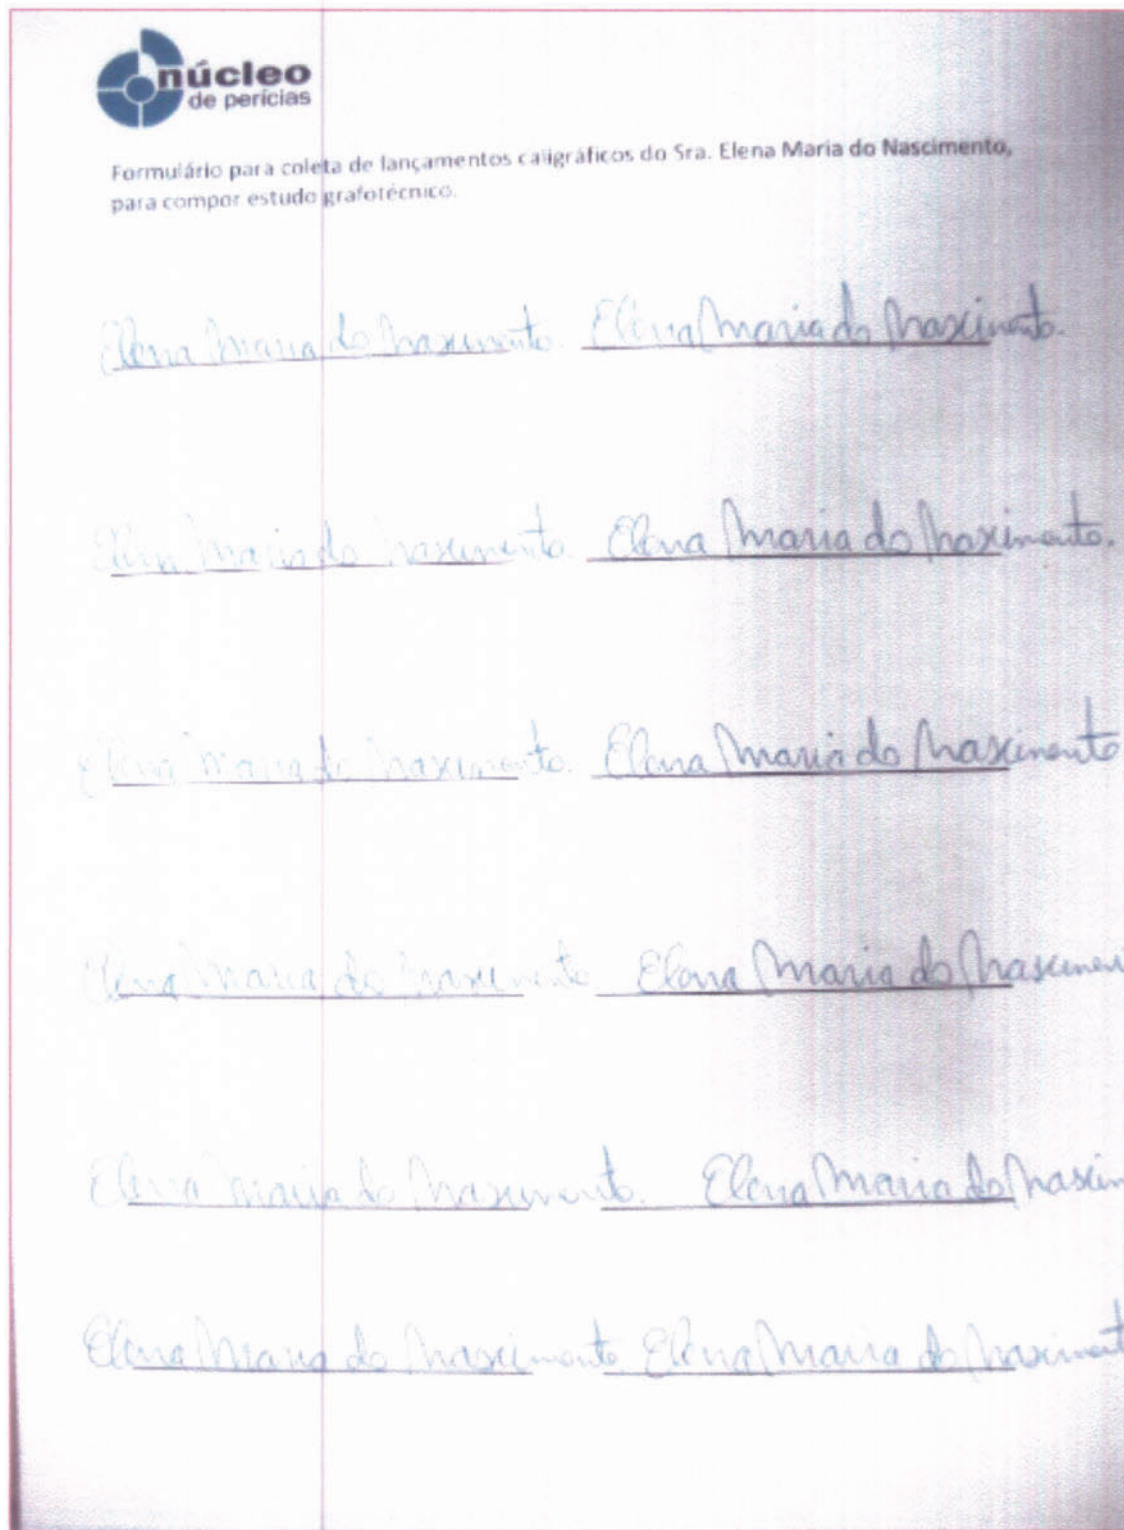 núcleo
de perícias
Formulário para coleta de lançamentos caligráficos do Sra. Elena Maria do Nascimento,
para compor estudo grafotécnico.
Elena Maria do Nascimento. Elena Maria do Nascimento.
Elena Maria do Nascimento. Elena Maria do Nascimento.
Elena Maria do Nascimento. Elena Maria do Nascimento
Elena Maria do Nascimento Elena Maria do Nascimen
Elena Maria do Nascimento. Elena Maria do Nascim
Elena Maria do Nascimento Elena Maria do Nasciment